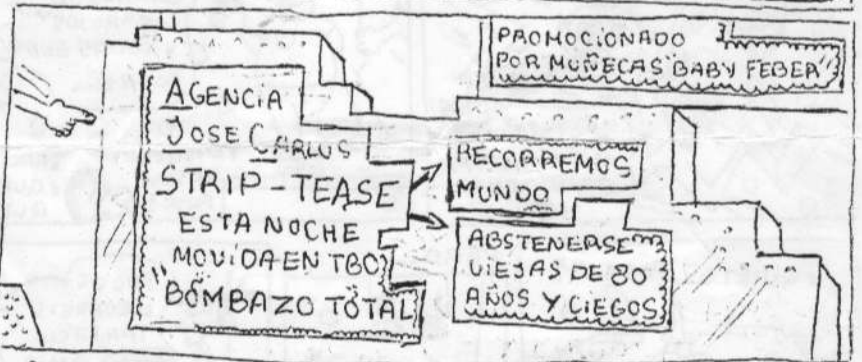 PROMOCIONADO
POR MUÑECAS "BABY FEBER"
AGENCIA
JOSE CARLOS
STRIP-TEASE
ESTA NOCHE
MOVIDA EN TBO
"BOMBAZO TOTAL
RECORREMOS
MUNDO
ABSTENERSE
VIEJAS DE 80
AÑOS Y CIEGOS